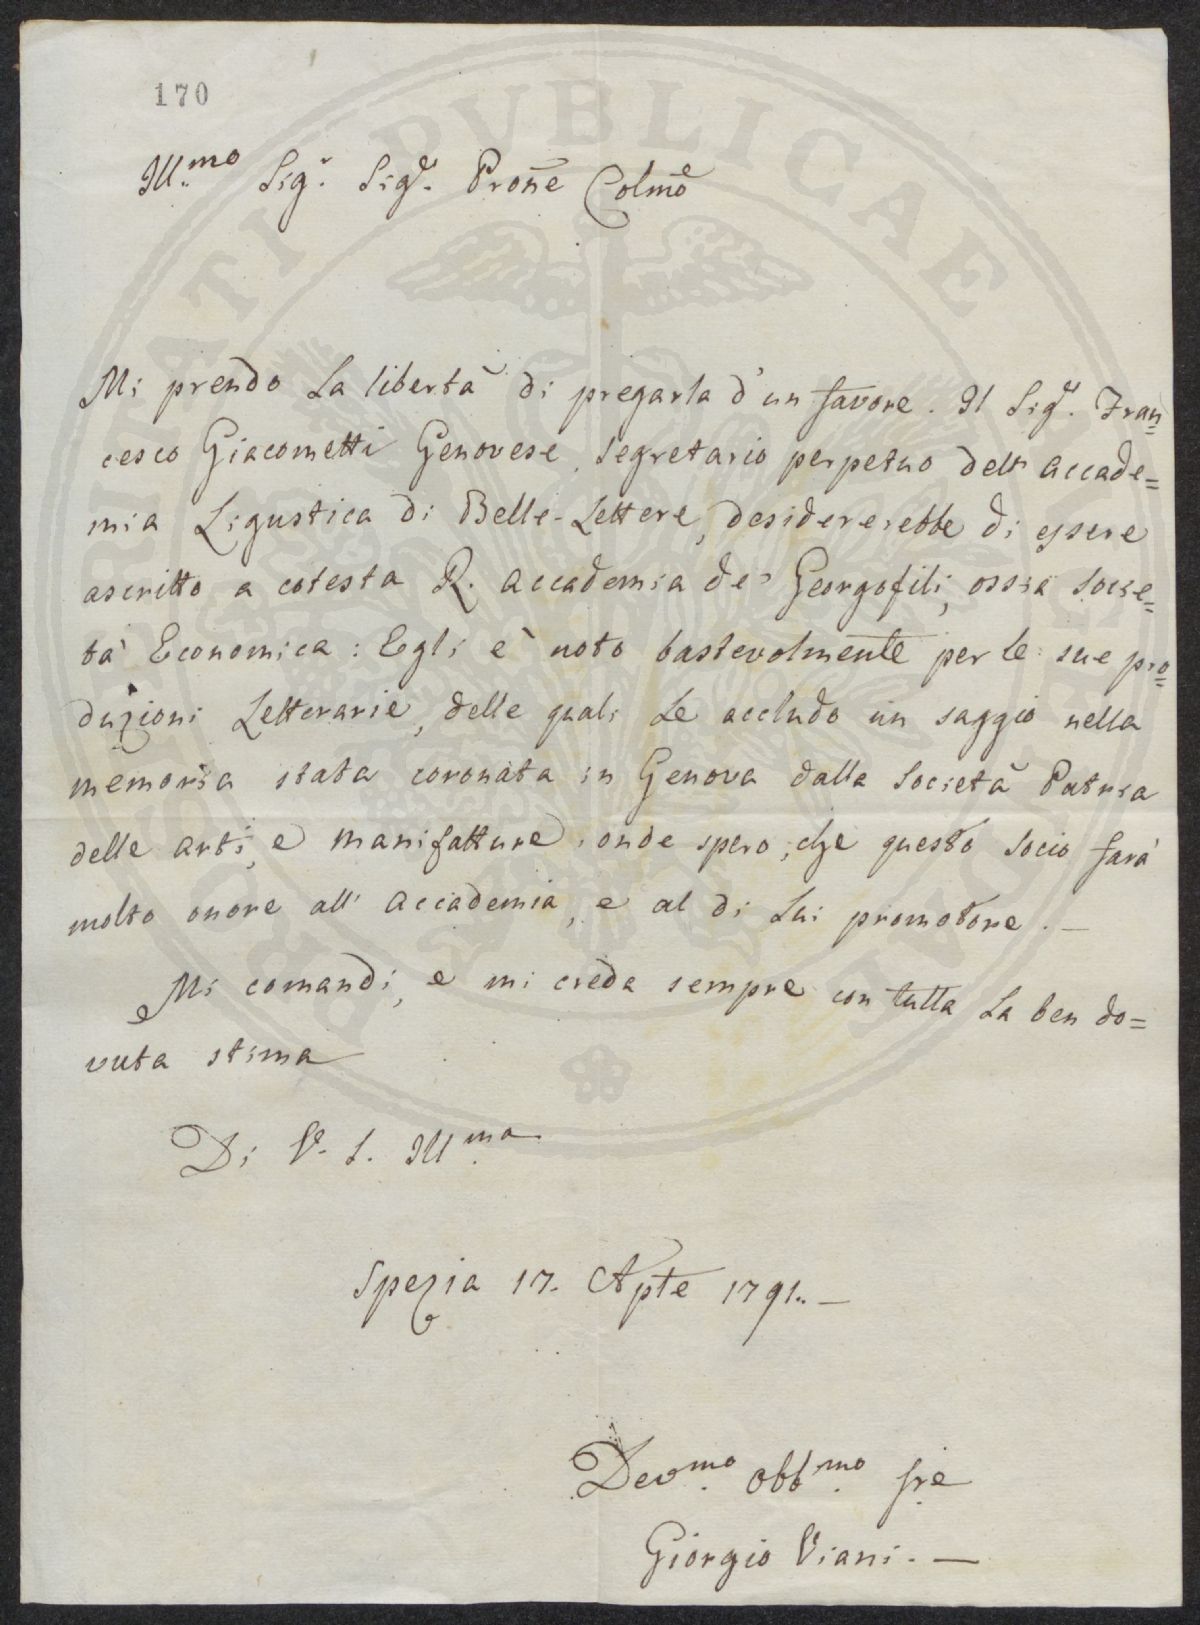 170
Ill.mo Sig.r Sig.r Prone Colmo
Mi prendo la libertà di pregarla d'un favore. Il Sig.r Fran=
cesco Giacometti Genovese, Segretario perpetuo dell'Accade=
mia Ligustica di Belle-Lettere, desidererebbe di essere
ascritto a cotesta R. Accademia de' Georgofili, ossia Socie=
tà Economica: Egli è noto bastevolmente per le sue pro=
duzioni Letterarie, delle quali Le accludo un saggio nella
memoria stata coronata in Genova dalla Società Patria
delle Arti, e Manifatture, onde spero, che questo Socio farà
molto onore all'Accademia, e al di Lui promotore. —
Mi comandi, e mi creda sempre con tutta La ben do=
vuta stima
Di V. S. Ill.ma
Spezia 17. Aple 1791. —
Dev.mo Obb.mo Sre
Giorgio Viani. —
PUBLICAE